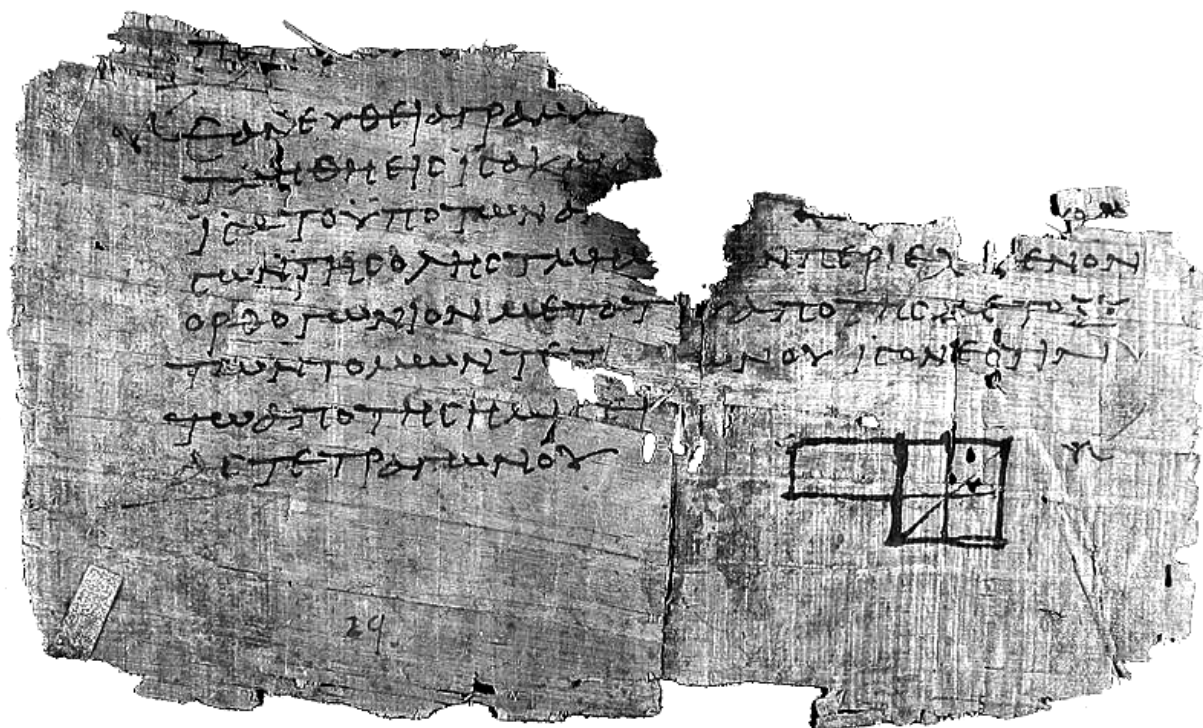 ΕΑΝ ΕΥΘΕΙΑ ΓΡΑΜ
ΤΜΗΘΗ ΕΙϹ ΙϹΑ ΚΑΙ Α
ΙϹΑ ΤΟ ΥΠΟ ΤΩΝ ΑΝ
ϹΩΝ ΤΗϹ ΟΛΗϹ ΤΜΗΜ ΩΝ ΠΕΡΙΕΧΟΜΕΝΟΝ
ΟΡΘΟΓΩΝΙΟΝ ΜΕΤΑ ΤΟΥ ΑΠΟ ΤΗϹ ΜΕΤΟΞΥ
ΤΩΝ ΤΟΜΩΝ ΤΕΤΡ ΩΝΟΥ ΙϹΟΝ ΕϹΤΙΝ
ΤΩ ΑΠΟ ΤΗϹ ΗΜΙϹΕΙ
ΑϹ ΤΕΤΡΑΓΩΝΟΥ
29